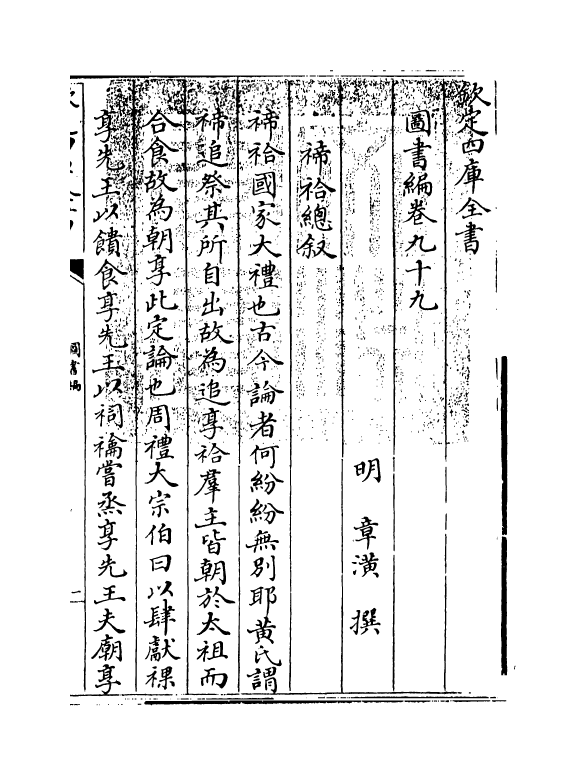 欽定四庫全書
圖書編卷九十九
明 章潢 撰
禘祫總叙
禘祫國家大禮也古今論者何紛紛無別耶黃氏謂
禘追祭其所自出故為追享祫羣主皆朝於太祖而
合食故為朝享此定論也周禮大宗伯曰以肆獻祼
享先王以饋食享先王以祠禴嘗烝享先王夫廟享
圖書編